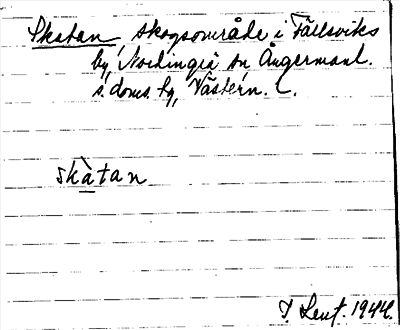 Skatan skogsområde i Fällsviks
by, Nordingrå sn Ångermanl.
s. doms. tg, Västern. L.
skàtan
J Leut. 1944.